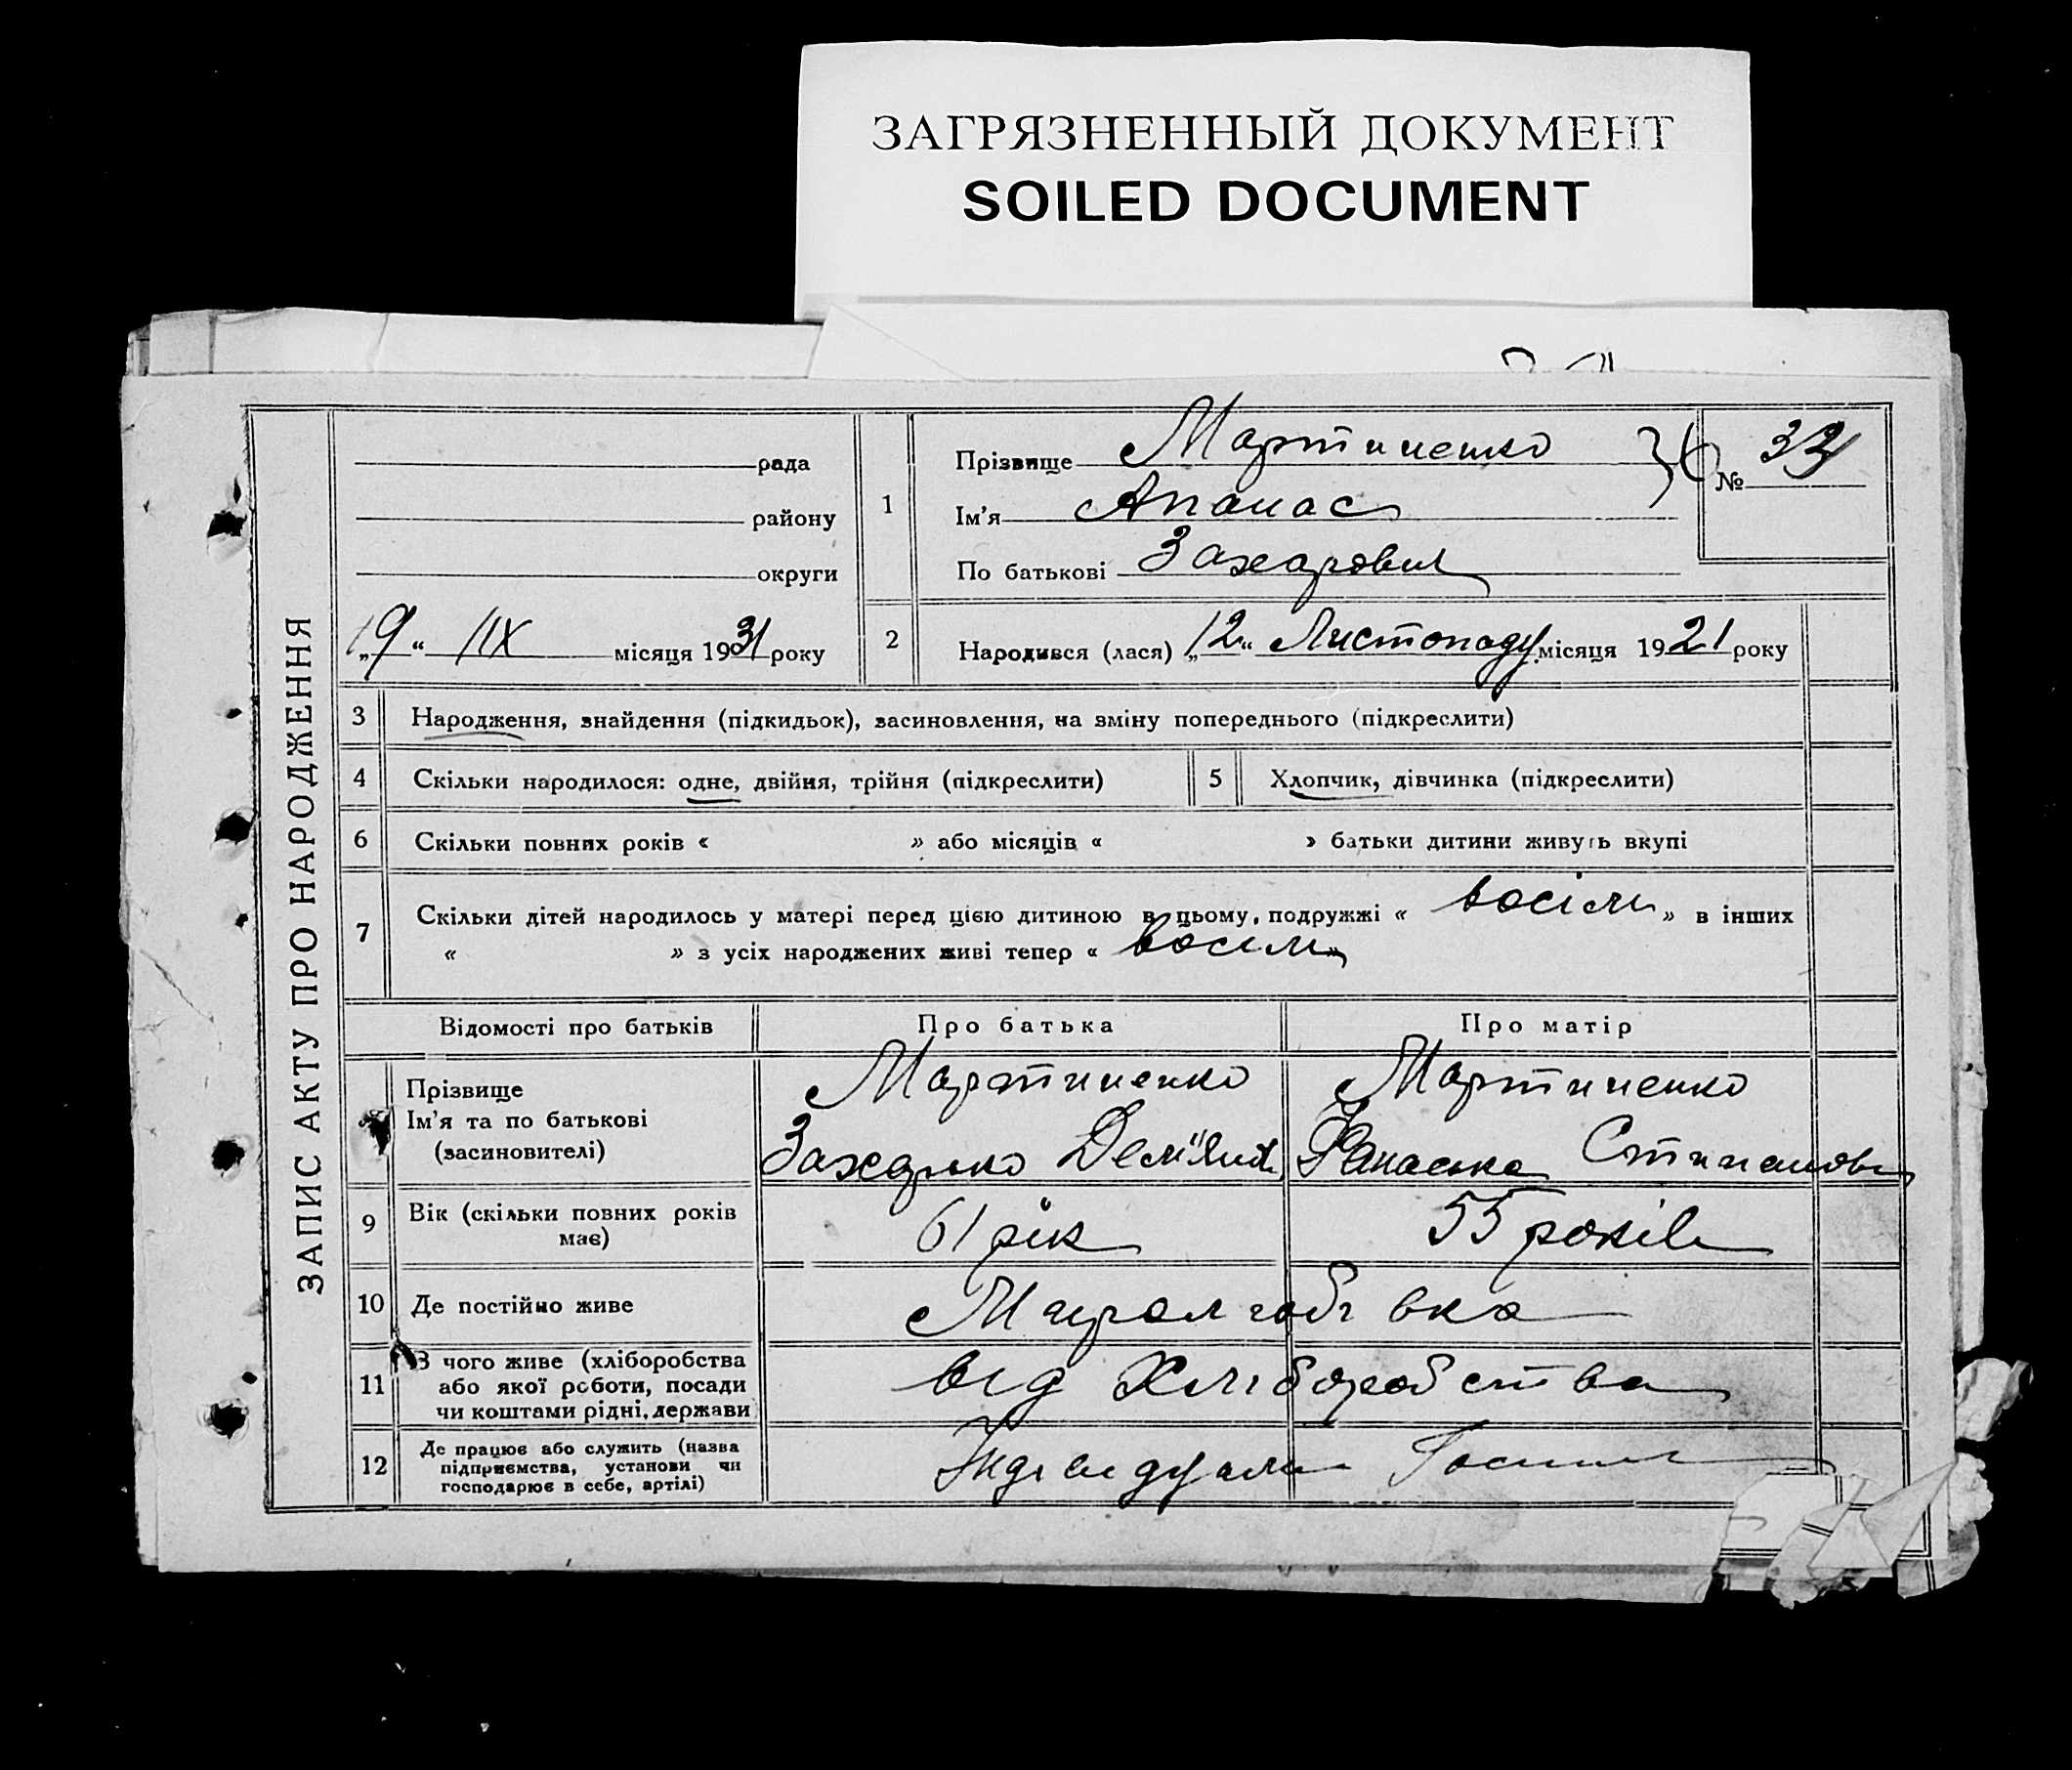 ЗАГРЯЗНЕННЫЙ ДОКУМЕНТ
SOILED DOCUMENT
ЗАПИС АКТУ ПРО НАРОДЖЕННЯ
рада
району
округи
„19“ IIX місяця 1931 року
1
Прізвище Мартиненко
Ім'я Апанас
По батькові Захарович
№ 33
2 Народився (лася) „12“ Листопаду місяця 1921 року
3 Народження, знайдення (підкидьок), засиновлення, на зміну попереднього (підкреслити)
4 Скільки народилося: одне, двійня, трійня (підкреслити) 5 Хлопчик, дівчинка (підкреслити)
6 Скільки повних років « » або місяців « » батьки дитини живуть вкупі
7 Скільки дітей народилось у матері перед цією дитиною в цьому подружжі « восім » в інших
« » з усіх народжених живі тепер « восім »
Відомості про батьків Про батька Про матір
Прізвище Мартиненко Мартиненко
Ім'я та по батькові
(засиновителі) Захарко Стипанов
9 Вік (скільки повних років має) 61 рік 55 років
10 Де постійно живе
11 З чого живе (хліборобства
або якої роботи, посади
чи коштами рідні, держави від Хліборобства
12 Де працює або служить (назва
підприємства, установи чи
господарює в себе, артілі)